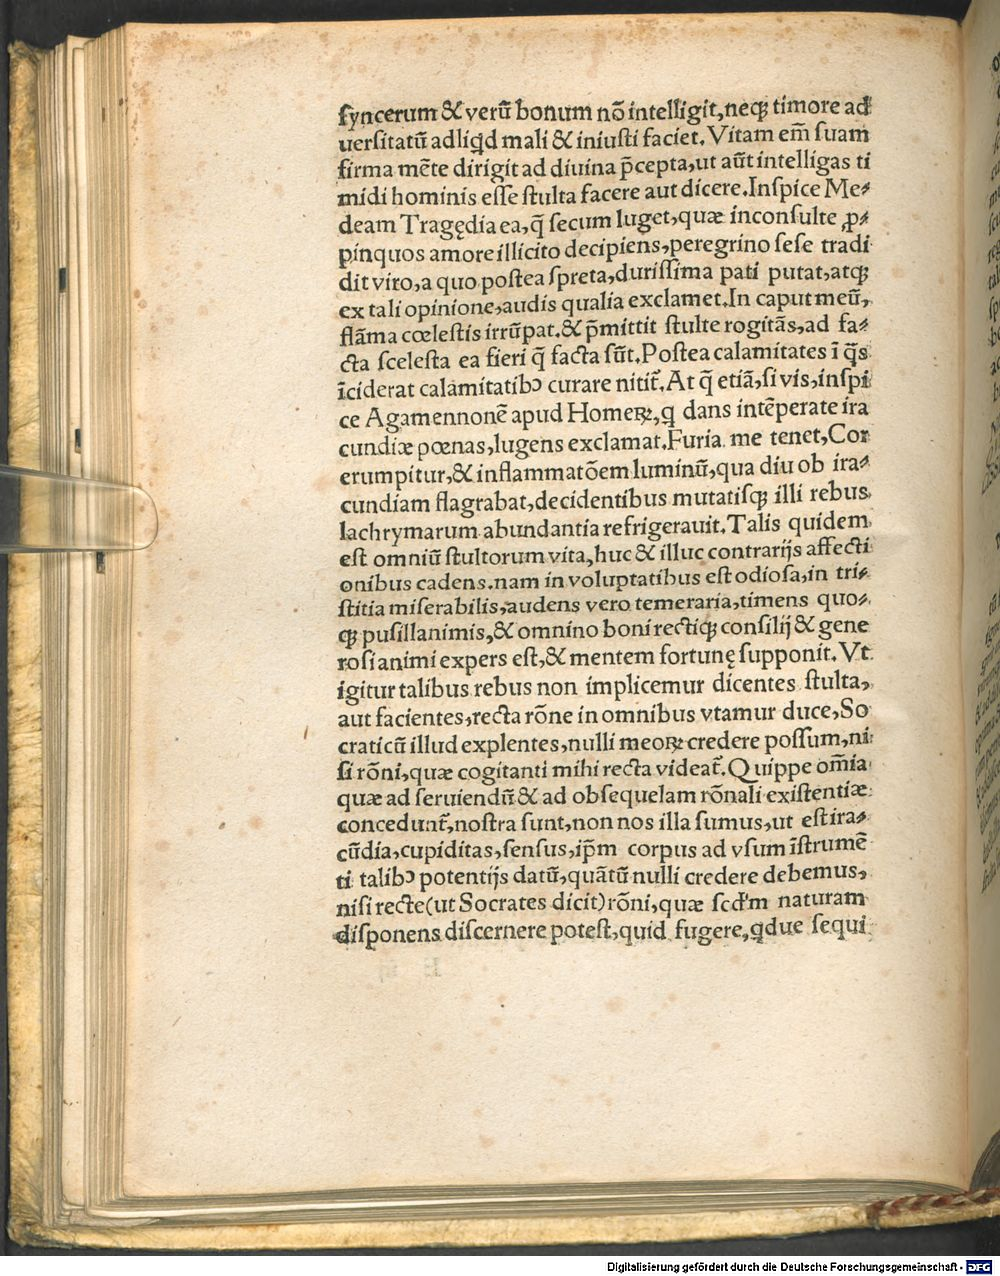 ſyncerum & verū bonum nō intelligit, neqꝫ timore ad
uerſitatū adliqd mali & iniuſti faciet. Vitam em̄ ſuam
firma mēte dirigit ad diuina p̄cepta, ut aūt intelligas ti
midi hominis eſſe ſtulta facere aut dicere. Inſpice Me⸗
deam Tragędia ea, q̄ ſecum luget, quæ inconſulte ꝓ⸗
pinquos amore illicito decipiens, peregrino ſeſe tradi
dit viro, a quo poſtea ſpreta, duriſſima pati putat, atqꝫ
ex tali opinione, audis qualia exclamet. In caput meū,
flāma cœleſtis irrūpat. & p̄mittit ſtulte rogitās, ad fa⸗
cta ſceleſta ea fieri q̄ facta ſūt. Poſtea calamitates ī q̄s
īciderat calamitatibꝰ curare nitit̄. At q̄ etiā, ſi vis, inſpi
ce Agamennonē apud Homeꝝ, ꝗ dans intēperate ira
cundiæ pœnas, lugens exclamat. Furia me tenet, Cor
erumpitur, & inflammatōem luminū, qua diu ob ira⸗
cundiam flagrabat, decidentibus mutatiſqꝫ illi rebus
lachrymarum abundantia refrigerauit. Talis quidem
eſt omniū ſtultorum vita, huc & illuc contrarijs affecti
onibus cadens. nam in voluptatibus eſt odioſa, in tri⸗
ſtitia miſerabilis, audens vero temeraria, timens quo⸗
qꝫ puſillanimis, & omnino boni rectiqꝫ conſilij & gene
roſi animi expers eſt, & mentem fortunę ſupponit. Vt
igitur talibus rebus non implicemur dicentes ſtulta,
aut facientes, recta rōne in omnibus vtamur duce, So
craticū illud explentes, nulli meoꝝ credere poſſum, ni
ſi rōni, quæ cogitanti mihi recta videat̄. Quippe om̄ia
quæ ad ſeruiendū & ad obſequelam rōnali exiſtentiæ
concedunt̄, noſtra ſunt, non nos illa ſumus, ut eſt ira⸗
cūdia, cupiditas, ſenſus, ip̄m corpus ad vſum īſtrumē
ti talibꝰ potentijs datū, quātū nulli credere debemus,
niſi recte (ut Socrates dicit) rōni, quæ ſcd'm naturam
diſponens diſcernere poteſt, quid fugere, ꝗdue ſequi
Digitalisierung gefördert durch die Deutsche Forschungsgemeinschaft - DFG